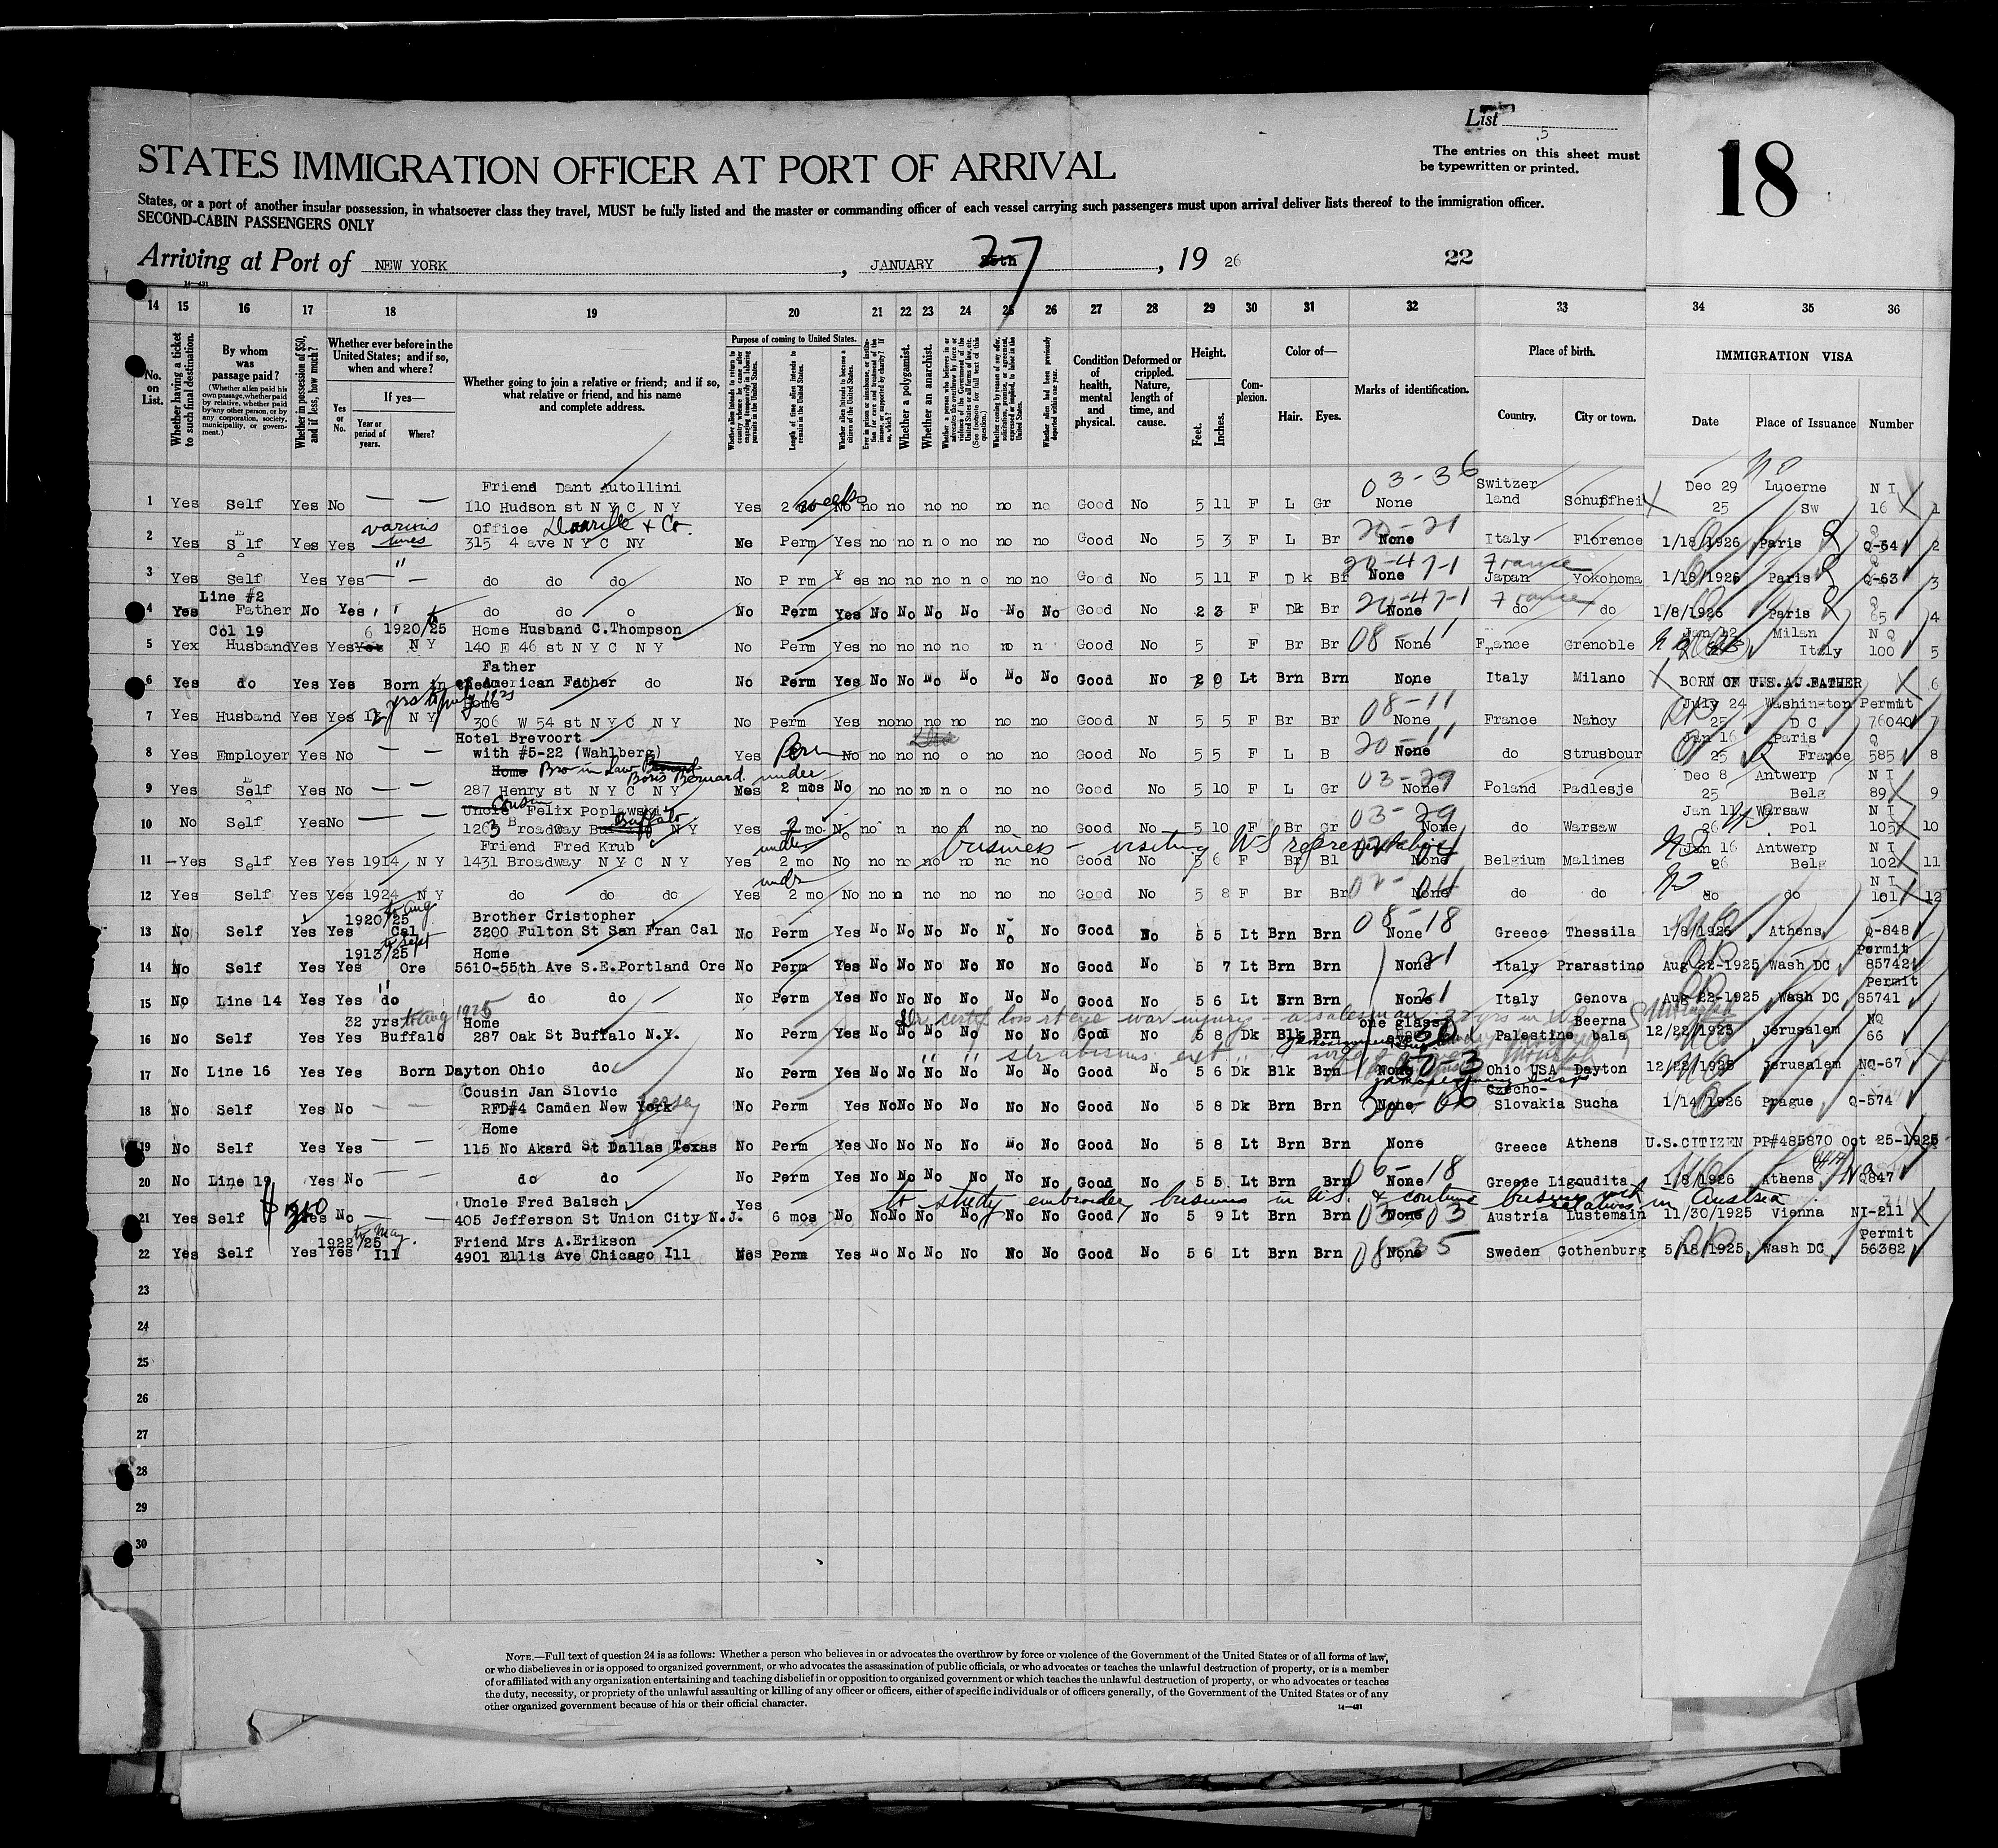 List
5
The entries on this sheet must
be typewritten or printed.
18
STATES IMMIGRATION OFFICER AT PORT OF ARRIVAL
States, or a port of another insular possession, in whatsoever class they travel, MUST be fully listed and the master or commanding officer of each vessel carrying such passengers must upon arrival deliver lists thereof to the immigration officer.
SECOND-CABIN PASSENGERS ONLY
Arriving at Port of NEW YORK, JANUARY 27, 19 26 22
14—421
14 15 16 17 18 19 20 21 22 23 24 25 26 27 28 29 30 31 32 33 34 35 36
No. on List.
Whether having a ticket to such final destination.
By whom was passage paid?
(Whether alien paid his own passage, whether paid by relative, whether paid by any other person, or by any corporation, society, municipality, or government.)
Whether in possession of $50, and if less, how much?
Whether ever before in the United States; and if so, when and where?
Yes or No.
If yes—
Year or period of years.
Where?
Whether going to join a relative or friend; and if so, what relative or friend, and his name and complete address.
Purpose of coming to United States.
Length of time alien intends to remain in the United States.
Whether alien intends to become a citizen of the United States.
Whether a polygamist.
Whether an anarchist.
Whether alien had been previously deported within one year.
Condition of health, mental and physical.
Deformed or crippled. Nature, length of time, and cause.
Height.
Feet. Inches.
Complexion.
Color of—
Hair. Eyes.
Marks of identification.
Place of birth.
Country. City or town.
IMMIGRATION VISA
Date Place of Issuance Number
03-36
Friend Dant Autollini Switzer Dec 29 Lucerne N I
1 Yes Self Yes No — — 110 Hudson st N Y C N Y Yes 2 weeks No no no no no no no Good No 5 11 F L Gr None land Schupfhei 25 Sw 16 1
various times Office & Co. 20-21 Q
2 Yes Self Yes Yes 315 4 ave N Y C NY No Perm Yes no no n o no no no Good No 5 3 F L Br None Italy Florence 1/18/1926 Paris Q-64 2
20-47-1 France
3 Yes Self Yes Yes — " — do do do No P rm Y es no no no n o no no Good No 5 11 F D k Br None Japan Yokohoma 1/18/1926 Paris Q-63 3
Line #2 20-47-1 France
4 Yes Father No Yes do do o No Perm Yes No No No No No No Good No 2 3 F Dk Br None do do 1/8/1926 Paris 65 4
Col 19 6 1920/25 Home Husband C.Thompson 08-11 Jan 12 Milan N Q
5 Yex Husband Yes Yes N Y 140 E 46 st N Y C N Y No Perm Yes no no no no no n Good No 5 F Br Br None France Grenoble Italy 100 5
Father
6 Yes do Yes Yes Born in American Father do No Perm Yes No No No No No No Good No 2 9 Lt Brn Brn None Italy Milano BORN OF U.S.A. FATHER 6
Home 08-11 July 24 Washington Permit
7 Yes Husband Yes Yes N Y 306 W 54 st N Y C N Y No Perm Yes no no no no no no Good N 5 5 F Br Br None France Nancy 25 D C 76040 7
Hotel Brevoort 20-11 Jan 16 Paris Q
8 Yes Employer Yes No — — with #5-22 (Wahlberg) Yes Perm No no no no o no no Good No 5 5 F L B None do Strusbour 25 France 585 8
Home Bro in Law Boris Bernard under 03-29 Dec 8 Antwerp N I
9 Yes Self Yes No — — 287 Henry st N Y C N Y Yes 2 mos No no no no n o no no Good No 5 10 F L Gr None Poland Padlesje 25 Belg 89 9
Uncle Cousin Felix Poplawski 03-29 Jan 11 Warsaw N I
10 No Self Yes No 1263 Broadway Buffalo N Y Yes 2 mo No no n no n no no Good No 5 10 F Br Gr None do Warsaw 26 Pol 105 10
Friend Fred Krub under business - visiting US representative Jan 16 Antwerp N I
11 —Yes Self Yes Yes 1914 N Y 1431 Broadway N Y C N Y Yes 2 mo No no no no no no no Good No 5 6 F Br Bl None Belgium Malines 26 Belg 102 11
undr 02-04 N I
12 Yes Self Yes Yes 1924 N Y do do do Yes 2 mo No no n no no no no Good No 5 8 F Br Br None do do do do 101 12
1920/25 to Aug Brother Cristopher 08-18
13 No Self Yes Yes Cal 3200 Fulton St San Fran Cal No Perm Yes No No No No No No Good No 5 5 Lt Brn Brn None Greece Thessila 1/8/1926 Athens Q-848
1913/25 to Sept Home Permit
14 No Self Yes Yes Ore 5610-55th Ave S.E.Portland Ore No Perm Yes No No No No No No Good No 5 7 Lt Brn Brn None Italy Prarastino Aug 22-1925 Wash DC 85742
Permit
15 No Line 14 Yes Yes do do do No Perm Yes No No No No No No Good No 5 6 Lt Brn Brn None Italy Genova Aug 22-1925 Wash DC 85741
32 yrs to Aug 1925 Home Dr certif loss rt eye war injury - a salesman 32 yrs in US one glass Beerna NQ
16 No Self Yes Yes Buffalo 287 Oak St Buffalo N.Y. No Perm Yes No No No No No No Good No 5 8 Dk Blk Brn eye Palestine bala 12/22/1925 Jerusalem 66
" " strabismus
17 No Line 16 Yes Yes Born Dayton Ohio do No Perm Yes No No No No No No Good No 5 6 Dk Blk Brn None Ohio USA Dayton 12/22/1925 Jerusalem NQ-67
Cousin Jan Slovic Czecho-
18 No Self Yes No — — RFD#4 Camden New York Jersey No Perm Yes No No No No No No Good No 5 8 Dk Brn Brn None Slovakia Sucha 1/14/1926 Prague Q-574
Home
19 No Self Yes Yes — — 115 No Akard St Dallas Texas No Perm Yes No No No No No No Good No 5 8 Lt Brn Brn None Greece Athens U.S.CITIZEN PP#485870 Oct 25-1925
06-18
20 No Line 19 Yes No — — do do No Perm Yes No No No No No No Good No 5 5 Lt Brn Brn None Greece Ligoudita 1/8/1926 Athens Q847
Uncle Fred Balsch Yes to study embroidery business in U.S. & continue business with relatives in Austria
21 Yes Self Yes No — — 405 Jefferson St Union City N.J. 6 mos No No No No No No No Good No 5 9 Lt Brn Brn None 03-03 Austria Lustemain 11/30/1925 Vienna NI-211
1922/25 to May. Friend Mrs A.Erikson 08-35 Permit
22 Yes Self Yes Yes Ill 4901 Ellis Ave Chicago Ill Perm Yes No No No No No No Good No 5 6 Lt Brn Brn None Sweden Gothenburg 5/18/1925 Wash DC 56382
23
24
25
26
27
28
29
30
NOTE.—Full text of question 24 is as follows: Whether a person who believes in or advocates the overthrow by force or violence of the Government of the United States or of all forms of law,
or who disbelieves in or is opposed to organized government, or who advocates the assassination of public officials, or who advocates or teaches the unlawful destruction of property, or is a member
of or affiliated with any organization entertaining and teaching disbelief in or opposition to organized government or which teaches the unlawful destruction of property, or who advocates or teaches
the duty, necessity, or propriety of the unlawful assaulting or killing of any officer or officers, either of specific individuals or of officers generally, of the Government of the United States or of any
other organized government because of his or their official character.
14—421